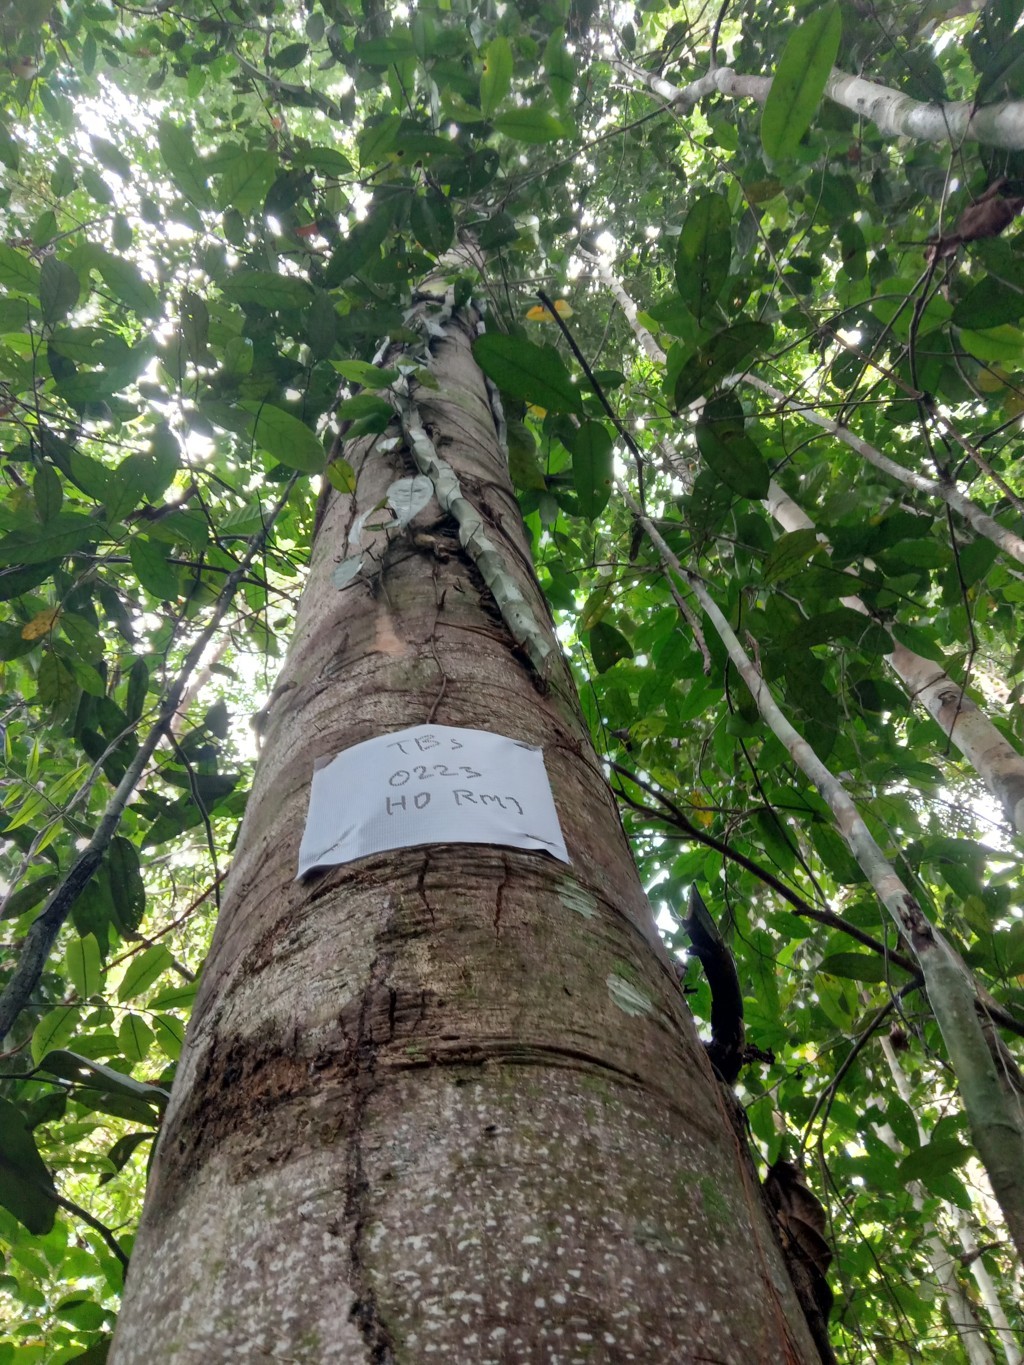 TBS
0223
HD RMJ